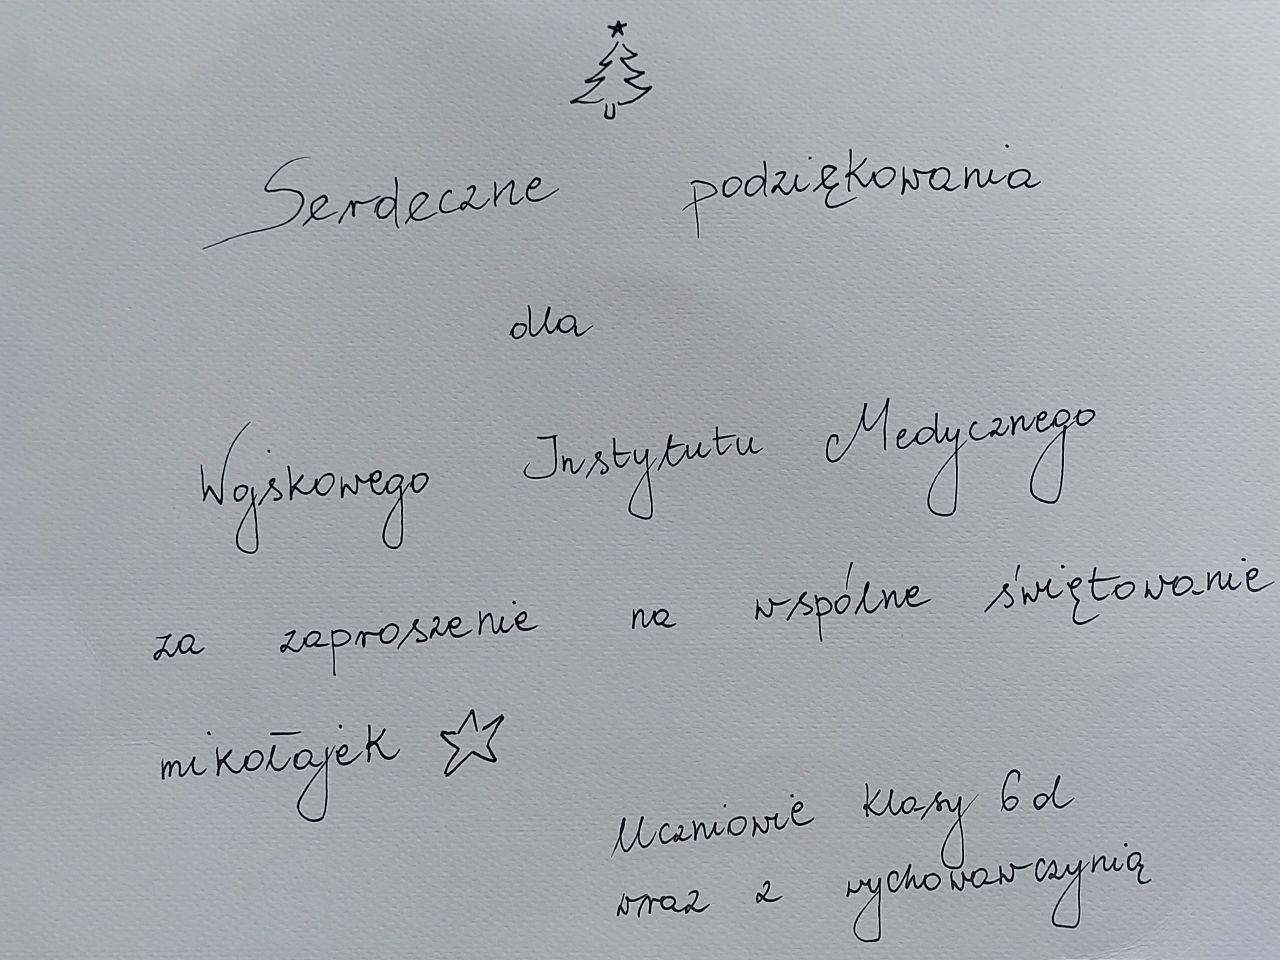 Serdeczne podziękowania
dla
Wojskowego Instytutu Medycznego
za zaproszenie na wspólne świętowanie
mikołajek
Uczniowie klasy 6 d
wraz z wychowawczynią